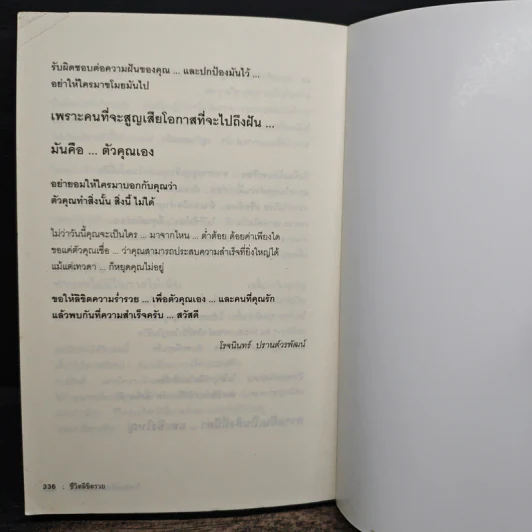 รับผิดชอบต่อความฝันของคุณ ... และปกป้องมันไว้ ...
อย่าให้ใครมาขโมยมันไป
เพราะคนที่จะสูญเสียโอกาสที่จะไปถึงฝัน ...
มันคือ ... ตัวคุณเอง
อย่ายอมให้ใครมาบอกกับคุณว่า
ตัวคุณทำสิ่งนั้น สิ่งนี้ ไม่ได้
ไม่ว่าวันนี้คุณจะเป็นใคร ... มาจากไหน ... ต่ำต้อย ด้อยค่าเพียงใด
ขอแค่ตัวคุณเชื่อ ... ว่าคุณสามารถประสบความสำเร็จที่ยิ่งใหญ่ได้
แม้แต่เทวดา ... ก็หยุดคุณไม่อยู่
ขอให้ลิขิตความร่ำรวย ... เพื่อตัวคุณเอง ... และคนที่คุณรัก
แล้วพบกันที่ความสำเร็จครับ ... สวัสดี
โรจนินทร์ ปรานต์วรพัฒน์
336 : ชีวิตลิขิตรวย